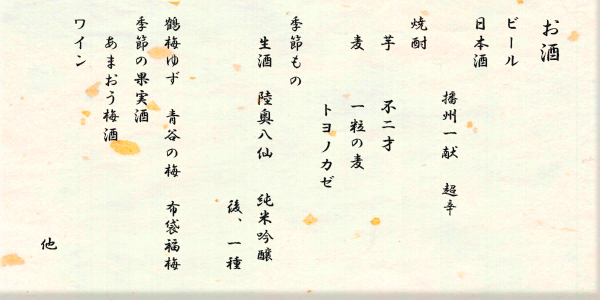 お酒
ビール
日本酒
播州一献 超辛
焼酎
芋 不二才
麦 一粒の麦
トヨノカゼ
季節もの
生酒 陸奥八仙 純米吟醸
後、一種
鶴梅ゆず 青谷の梅 布袋福梅
季節の果実酒
あまおう梅酒
ワイン
他